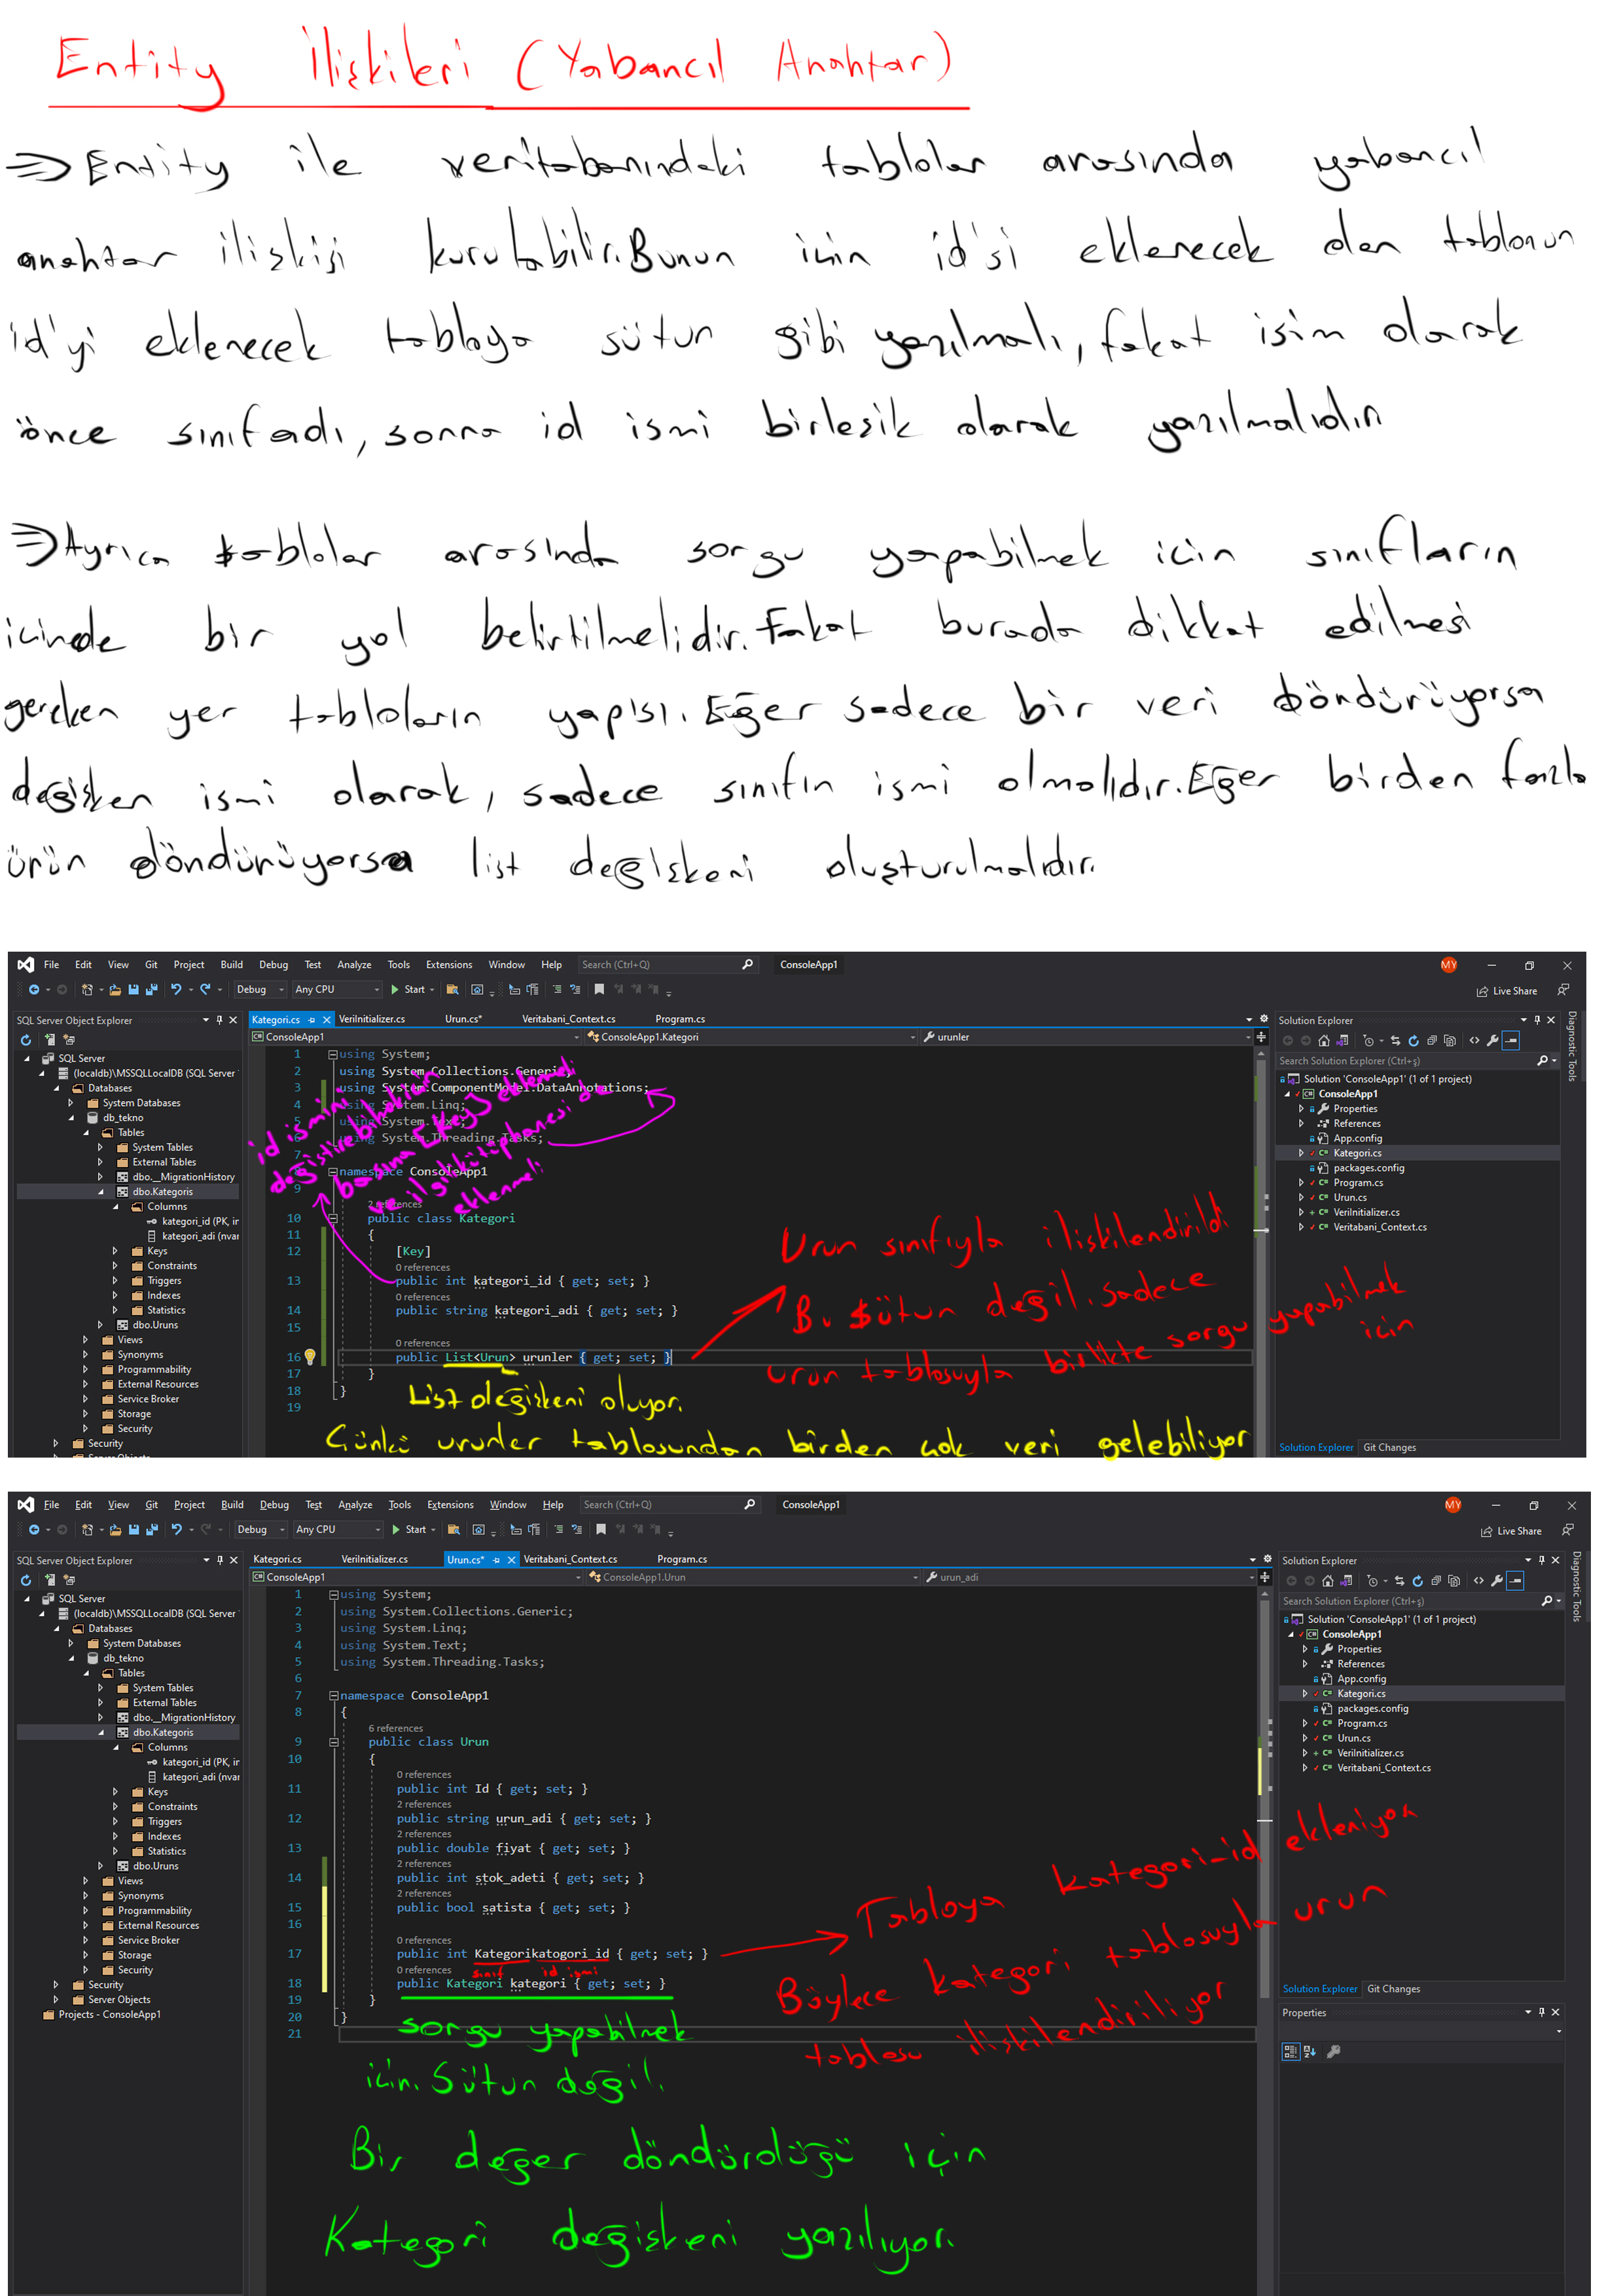 Entity İlişkileri (Yabancıl Anahtar)
⇒ Entity ile veritabanındaki tablolar arasında yabancıl
anahtar ilişkisi kurulabilir. Bunun için id'si eklenecek olan tablonun
id'yi eklenecek tabloya sütun gibi yazılmalı, fakat isim olarak
önce sınıfadı, sonra id ismi birleşik olarak yazılmalıdır.
⇒ Ayrıca tablolar arasında sorgu yapabilmek için sınıfların
içinde bir yol belirtilmelidir. Fakat burada dikkat edilmesi
gereken yer tabloların yapısı. Eğer sadece bir veri döndürüyorsa
değişken ismi olarak, sadece sınıfın ismi olmalıdır. Eğer birden fazla
ürün döndürüyorsa list değişkeni oluşturulmalıdır.
File Edit View Git Project Build Debug Test Analyze Tools Extensions Window Help Search (Ctrl+Q) ConsoleApp1 MY
Debug Any CPU Start Live Share
SQL Server Object Explorer
SQL Server
(localdb)\MSSQLLocalDB (SQL Server
Databases
System Databases
db_tekno
Tables
System Tables
External Tables
dbo.__MigrationHistory
dbo.Kategoris
Columns
kategori_id (PK, in
kategori_adi (nvar
Keys
Constraints
Triggers
Indexes
Statistics
dbo.Uruns
Views
Synonyms
Programmability
External Resources
Service Broker
Storage
Security
Security
Server Objects
Kategori.cs VeriInitializer.cs Urun.cs* Veritabani_Context.cs Program.cs
ConsoleApp1 ConsoleApp1.Kategori urunler
1 using System;
2 using System.Collections.Generic;
3 using System.ComponentModel.DataAnnotations;
4 using System.Linq;
5 using System.Text;
6 using System.Threading.Tasks;
7
8 namespace ConsoleApp1
9
2 references
10 public class Kategori
11 {
12 [Key]
0 references
13 public int kategori_id { get; set; }
0 references
14 public string kategori_adi { get; set; }
15
0 references
16 public List<Urun> urunler { get; set; }
17 }
18 }
19
id ismini
değiştirebilmek için
başına [Key] eklenmeli
ve ilgili kütüphanesi de
eklenmeli
Urun sınıfıyla ilişkilendirildi
Bu sütun değil. sadece
urun tablosuyla birlikte sorgu yapabilmek
için
List değişkeni oluyor.
Çünkü urunler tablosundan birden çok veri gelebiliyor
Solution Explorer
Search Solution Explorer (Ctrl+ş)
Solution 'ConsoleApp1' (1 of 1 project)
ConsoleApp1
Properties
References
App.config
Kategori.cs
packages.config
Program.cs
Urun.cs
VeriInitializer.cs
Veritabani_Context.cs
Solution Explorer Git Changes
Diagnostic Tools
File Edit View Git Project Build Debug Test Analyze Tools Extensions Window Help Search (Ctrl+Q) ConsoleApp1 MY
Debug Any CPU Start Live Share
SQL Server Object Explorer
SQL Server
(localdb)\MSSQLLocalDB (SQL Server
Databases
System Databases
db_tekno
Tables
System Tables
External Tables
dbo.__MigrationHistory
dbo.Kategoris
Columns
kategori_id (PK, in
kategori_adi (nvar
Keys
Constraints
Triggers
Indexes
Statistics
dbo.Uruns
Views
Synonyms
Programmability
External Resources
Service Broker
Storage
Security
Security
Server Objects
Projects - ConsoleApp1
Kategori.cs VeriInitializer.cs Urun.cs* Veritabani_Context.cs Program.cs
ConsoleApp1 ConsoleApp1.Urun urun_adi
1 using System;
2 using System.Collections.Generic;
3 using System.Linq;
4 using System.Text;
5 using System.Threading.Tasks;
6
7 namespace ConsoleApp1
8 {
6 references
9 public class Urun
10 {
0 references
11 public int Id { get; set; }
2 references
12 public string urun_adi { get; set; }
2 references
13 public double fiyat { get; set; }
2 references
14 public int stok_adeti { get; set; }
2 references
15 public bool satista { get; set; }
16
0 references
17 public int Kategorikatogori_id { get; set; }
0 references
sınıf id ismi
18 public Kategori kategori { get; set; }
19 }
20 }
21
Tabloya kategori_id ekleniyor
Böylece kategori tablosuyla urun
tablosu ilişkilendiriliyor
sorgu yapabilmek
için. Sütun değil.
Bir değer döndürdüğü için
Kategori değişkeni yazılıyor.
Solution Explorer
Search Solution Explorer (Ctrl+ş)
Solution 'ConsoleApp1' (1 of 1 project)
ConsoleApp1
Properties
References
App.config
Kategori.cs
packages.config
Program.cs
Urun.cs
VeriInitializer.cs
Veritabani_Context.cs
Solution Explorer Git Changes
Properties
Diagnostic Tools